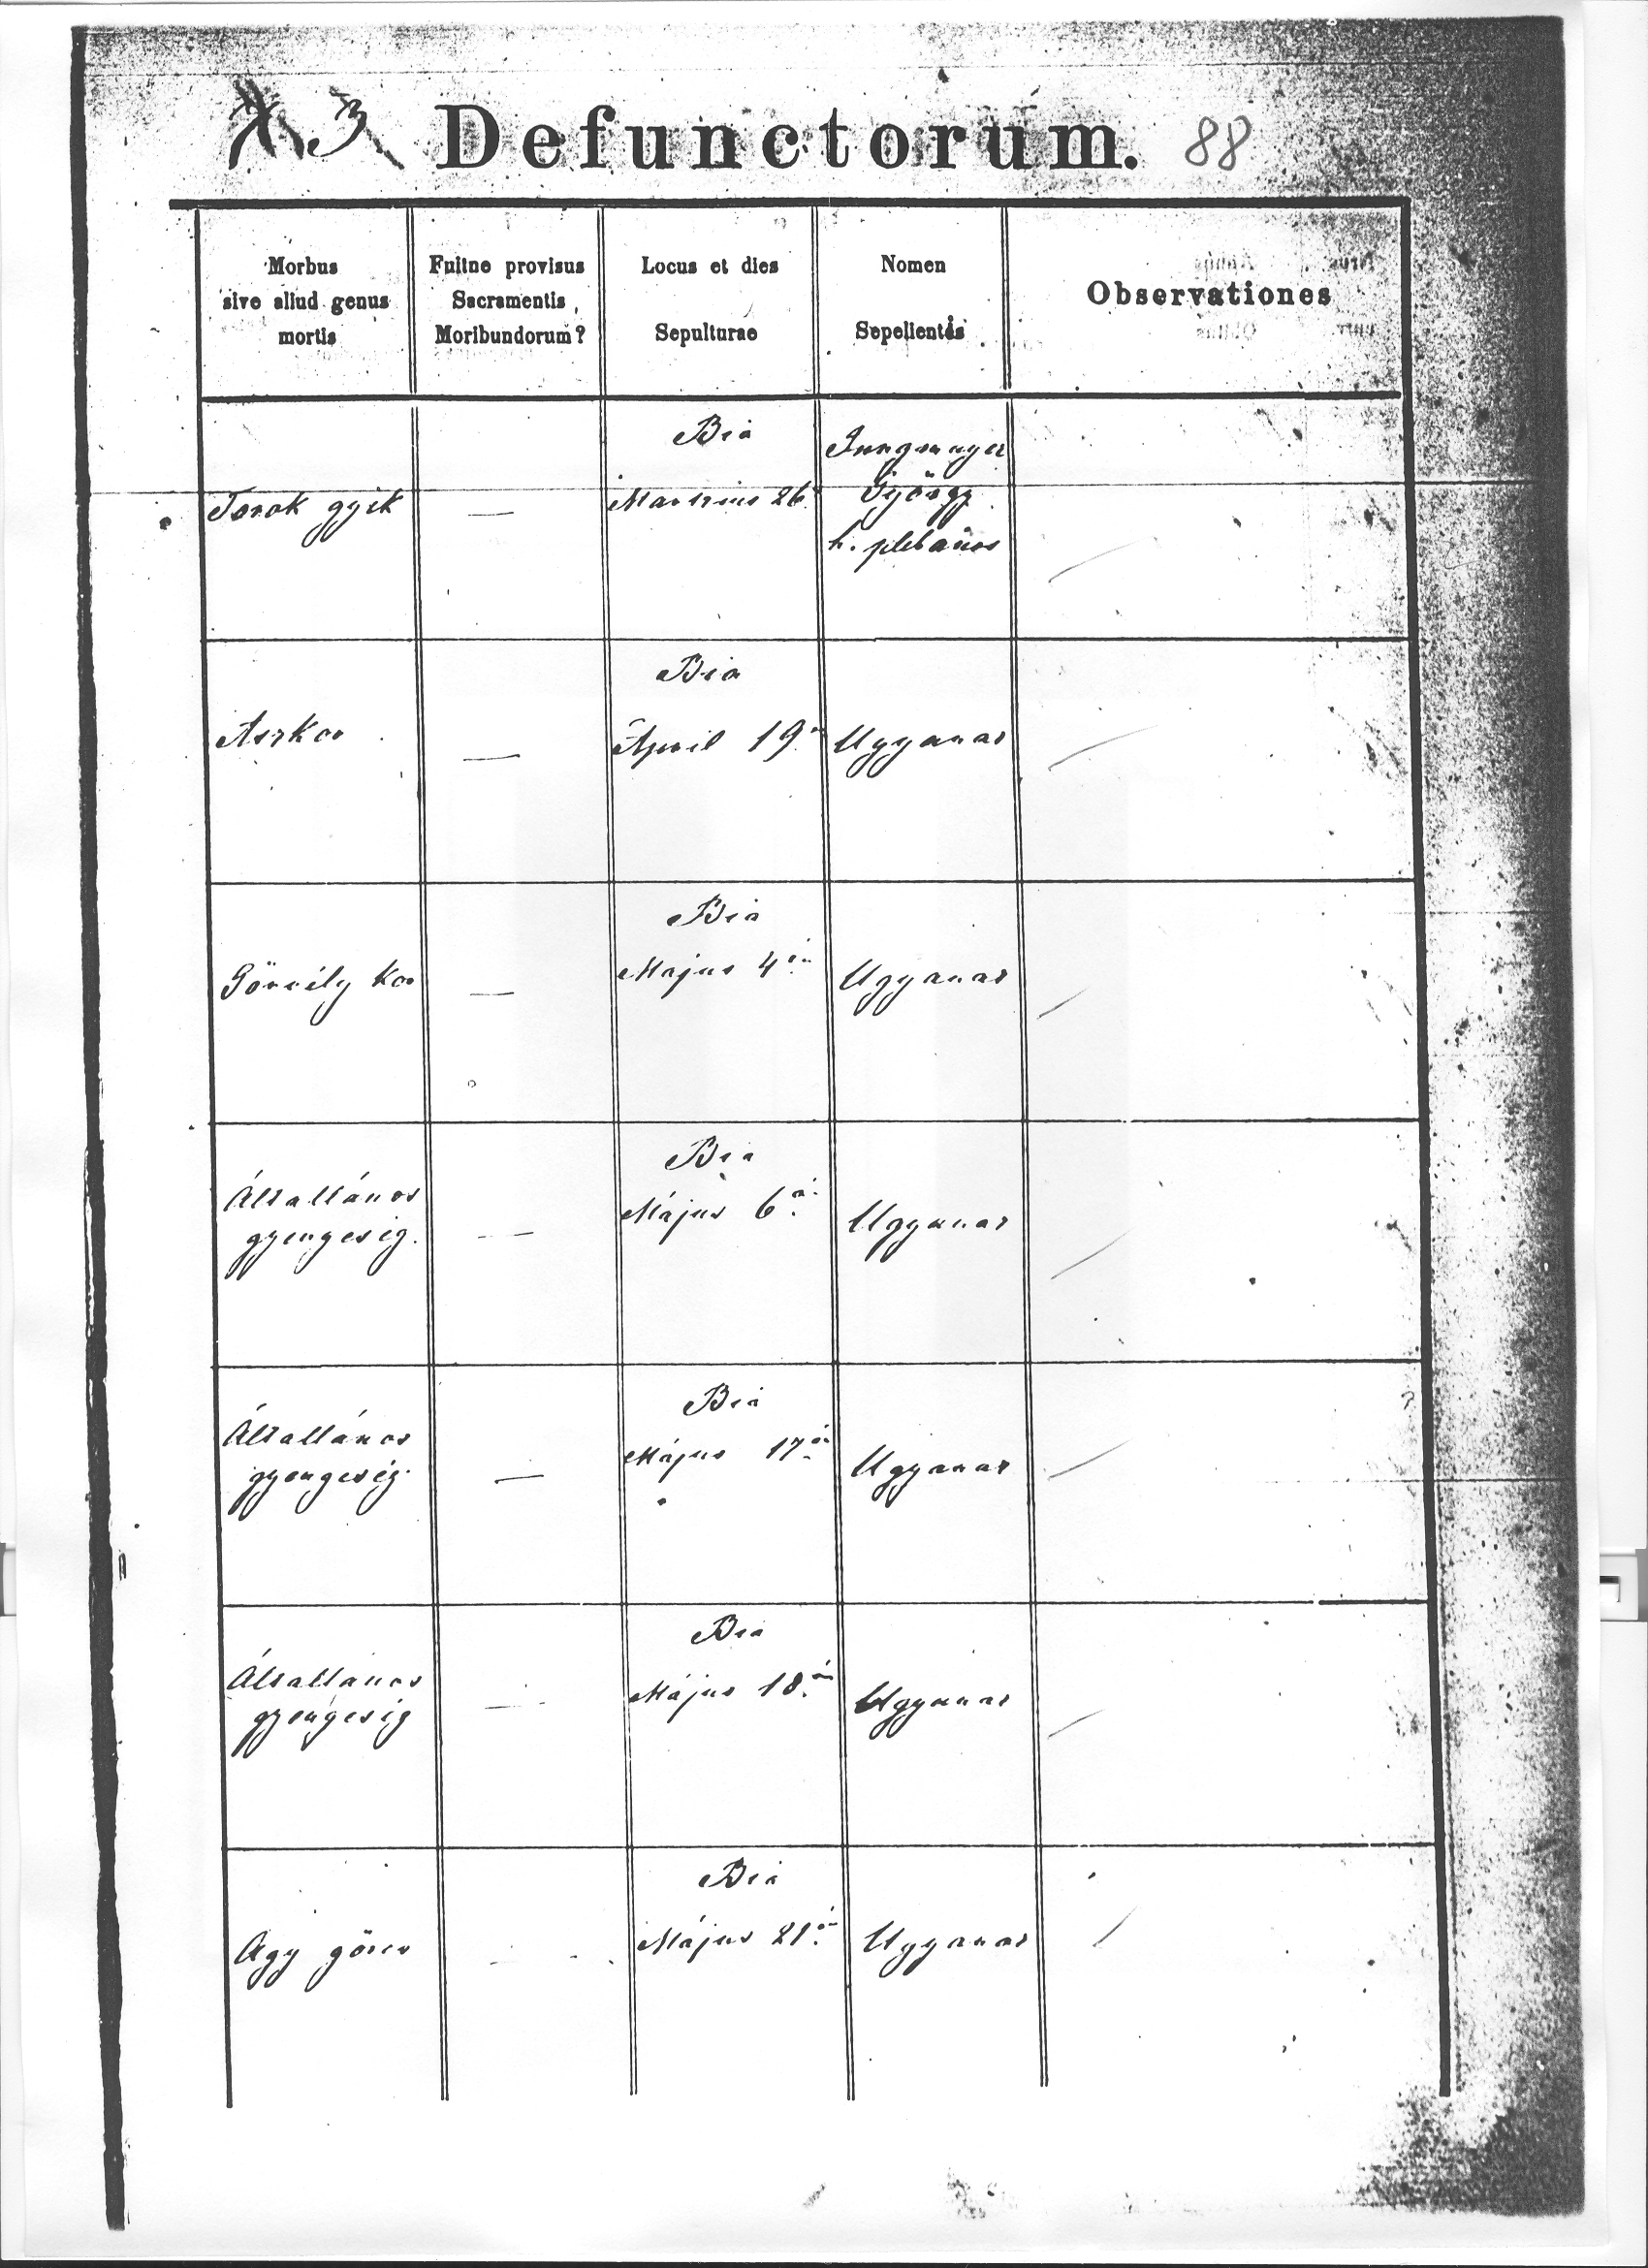 3 Defunctorum. 88
Morbus
sive aliud genus
mortis
Fuitne provisus
Sacramentis
Moribundorum?
Locus et dies
Sepulturae
Nomen
Sepelientis
Observationes
Torok gyik
—
Bia
Martzius 26
György
h. plebános
Aszkor
—
Bia
April 19.
Ugyanaz
Görvély kor
—
Bia
Majus 4én
Ugyanaz
Általlános
gyengeség.
—
Bia
Május 6á
Ugyanaz
Általlános
gyengeség.
—
Bia
Május 17én
Ugyanaz
Általlanos
gyengeség
—
Bia
Május 18án
Ugyanaz
Agy görcs
Bia
Május 21én
Ugyanaz